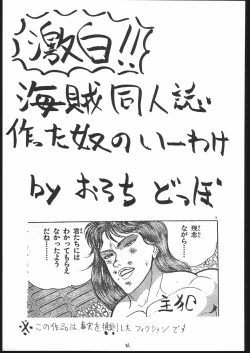 激白!!
海賊同人誌
作った奴のいーわけ
by おろち どっぽ
残念
ながら……
君たちには
わかってもらえ
なかったよう
だね…
主犯
※この作品は事実を種にしたフィクションです